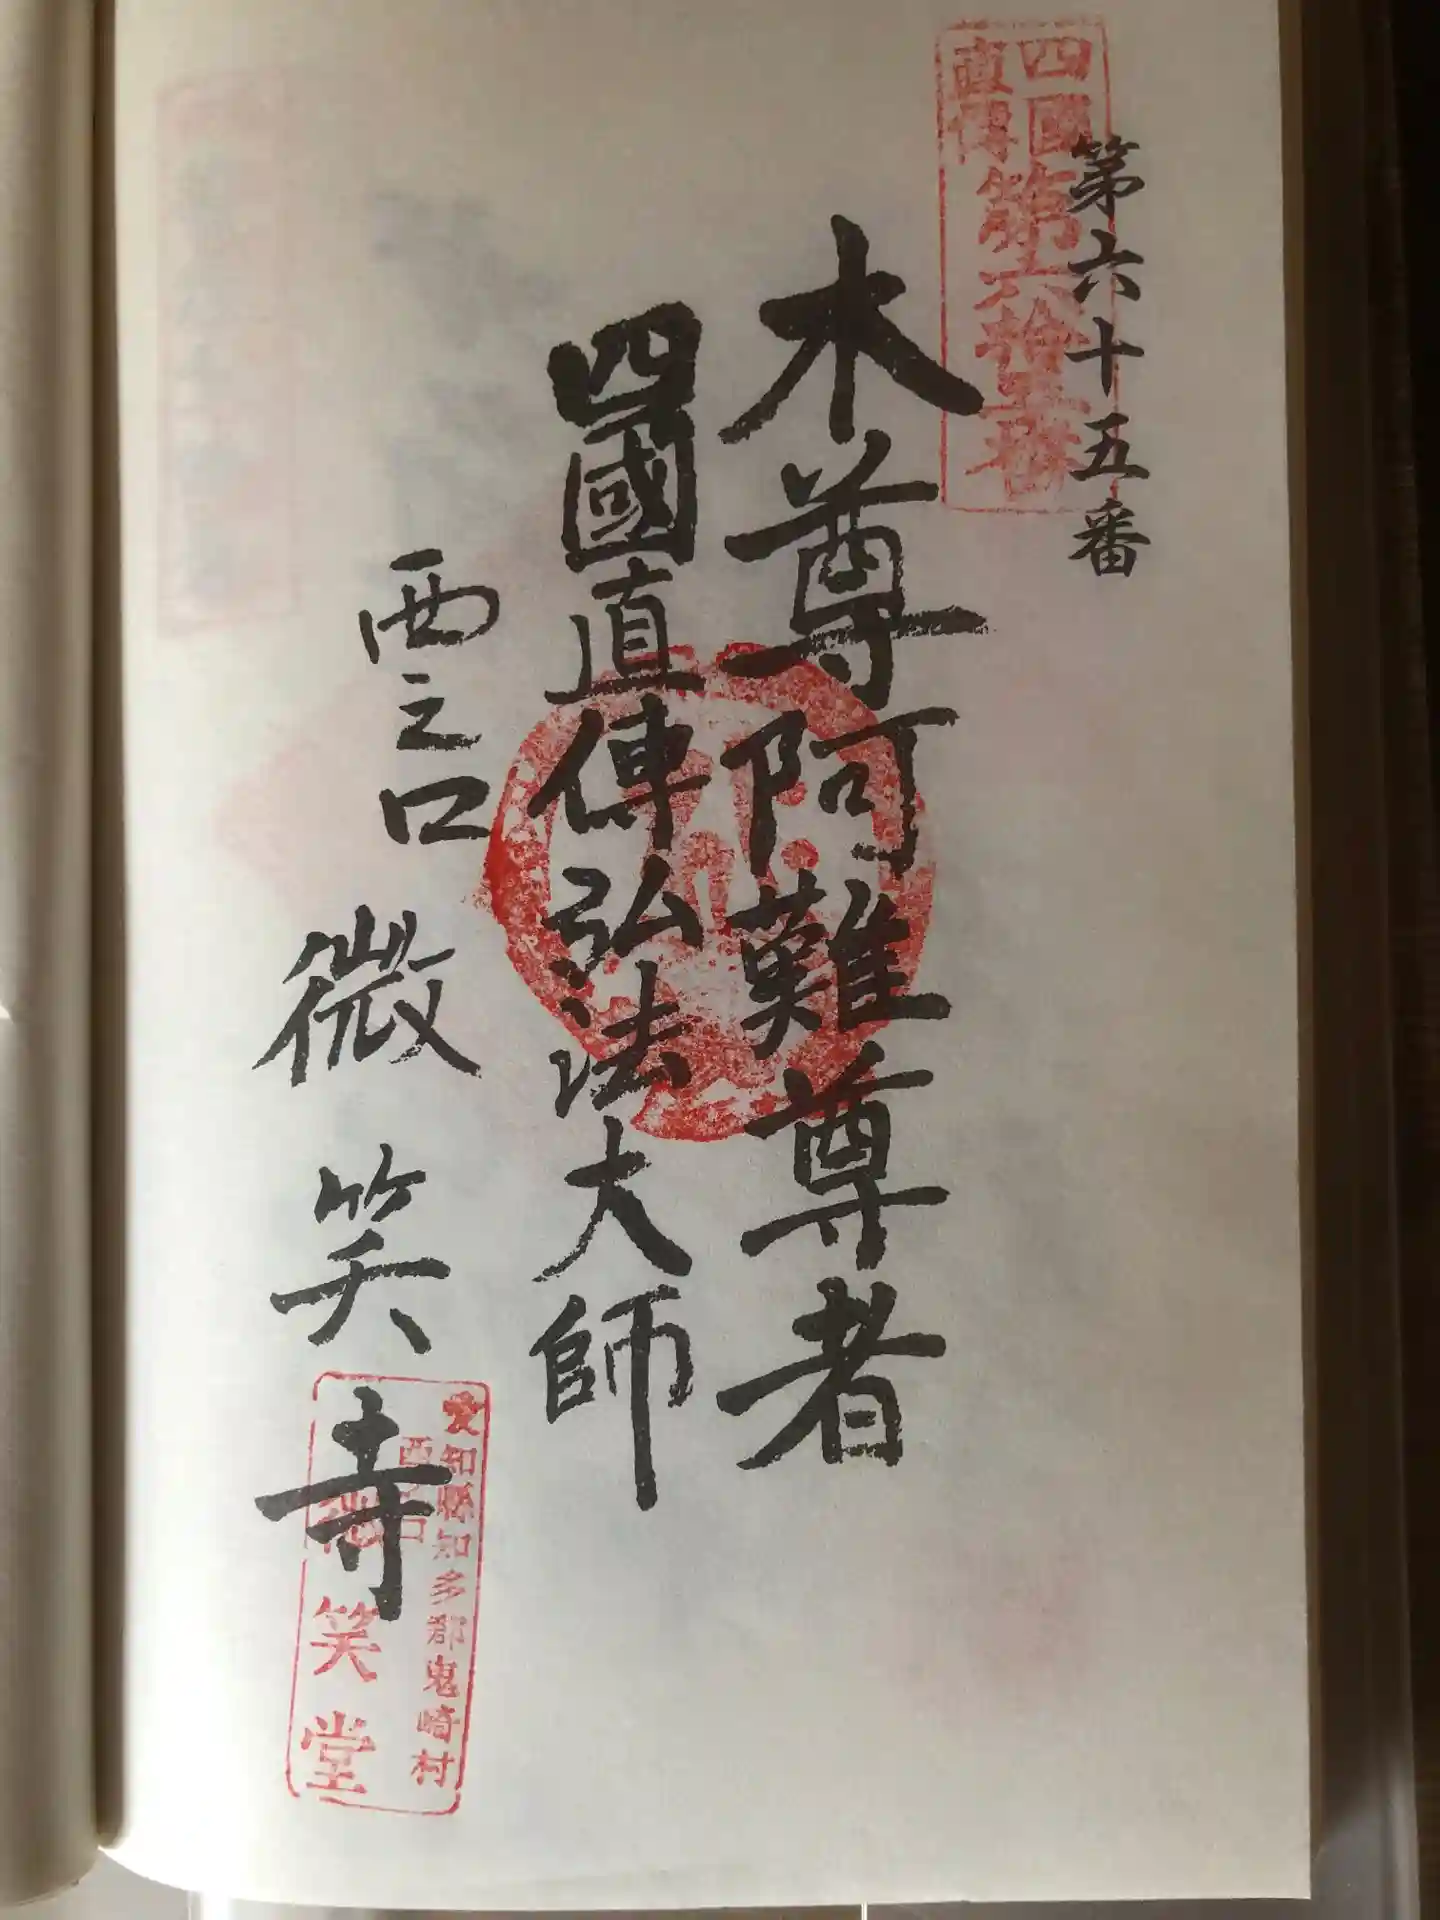 四國
直傳
第六拾五番
第六十五番
本尊阿難尊者
四國直傳弘法大師
西之口
微笑寺
愛知縣知多郡鬼崎村
西之口
微笑堂